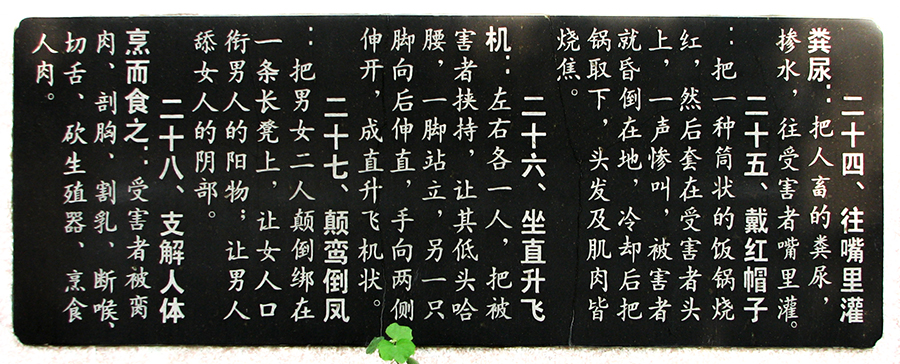 二十四、往嘴里灌
粪尿：把人畜的粪尿，
掺水，往受害者嘴里灌。
二十五、戴红帽子
：把一种筒状的饭锅烧
红，然后套在受害者头
上，一声惨叫，被害者
就昏倒在地，冷却后把
锅取下，头发及肌肉皆
烧焦。
二十六、坐直升飞
机：左右各一人，把被
害者挟持，让其低头哈
腰，一脚站立，另一只
脚向后伸直，手向两侧
伸开，成直升飞机状。
二十七、颠鸾倒凤
：把男女二人颠倒绑在
一条长凳上，让女人口
衔男人的阳物；让男人
舔女人的阴部。
二十八、支解人体
烹而食之：受害者被离
肉、剖胸、割乳、断喉、
切舌、砍生殖器、烹食
人肉。